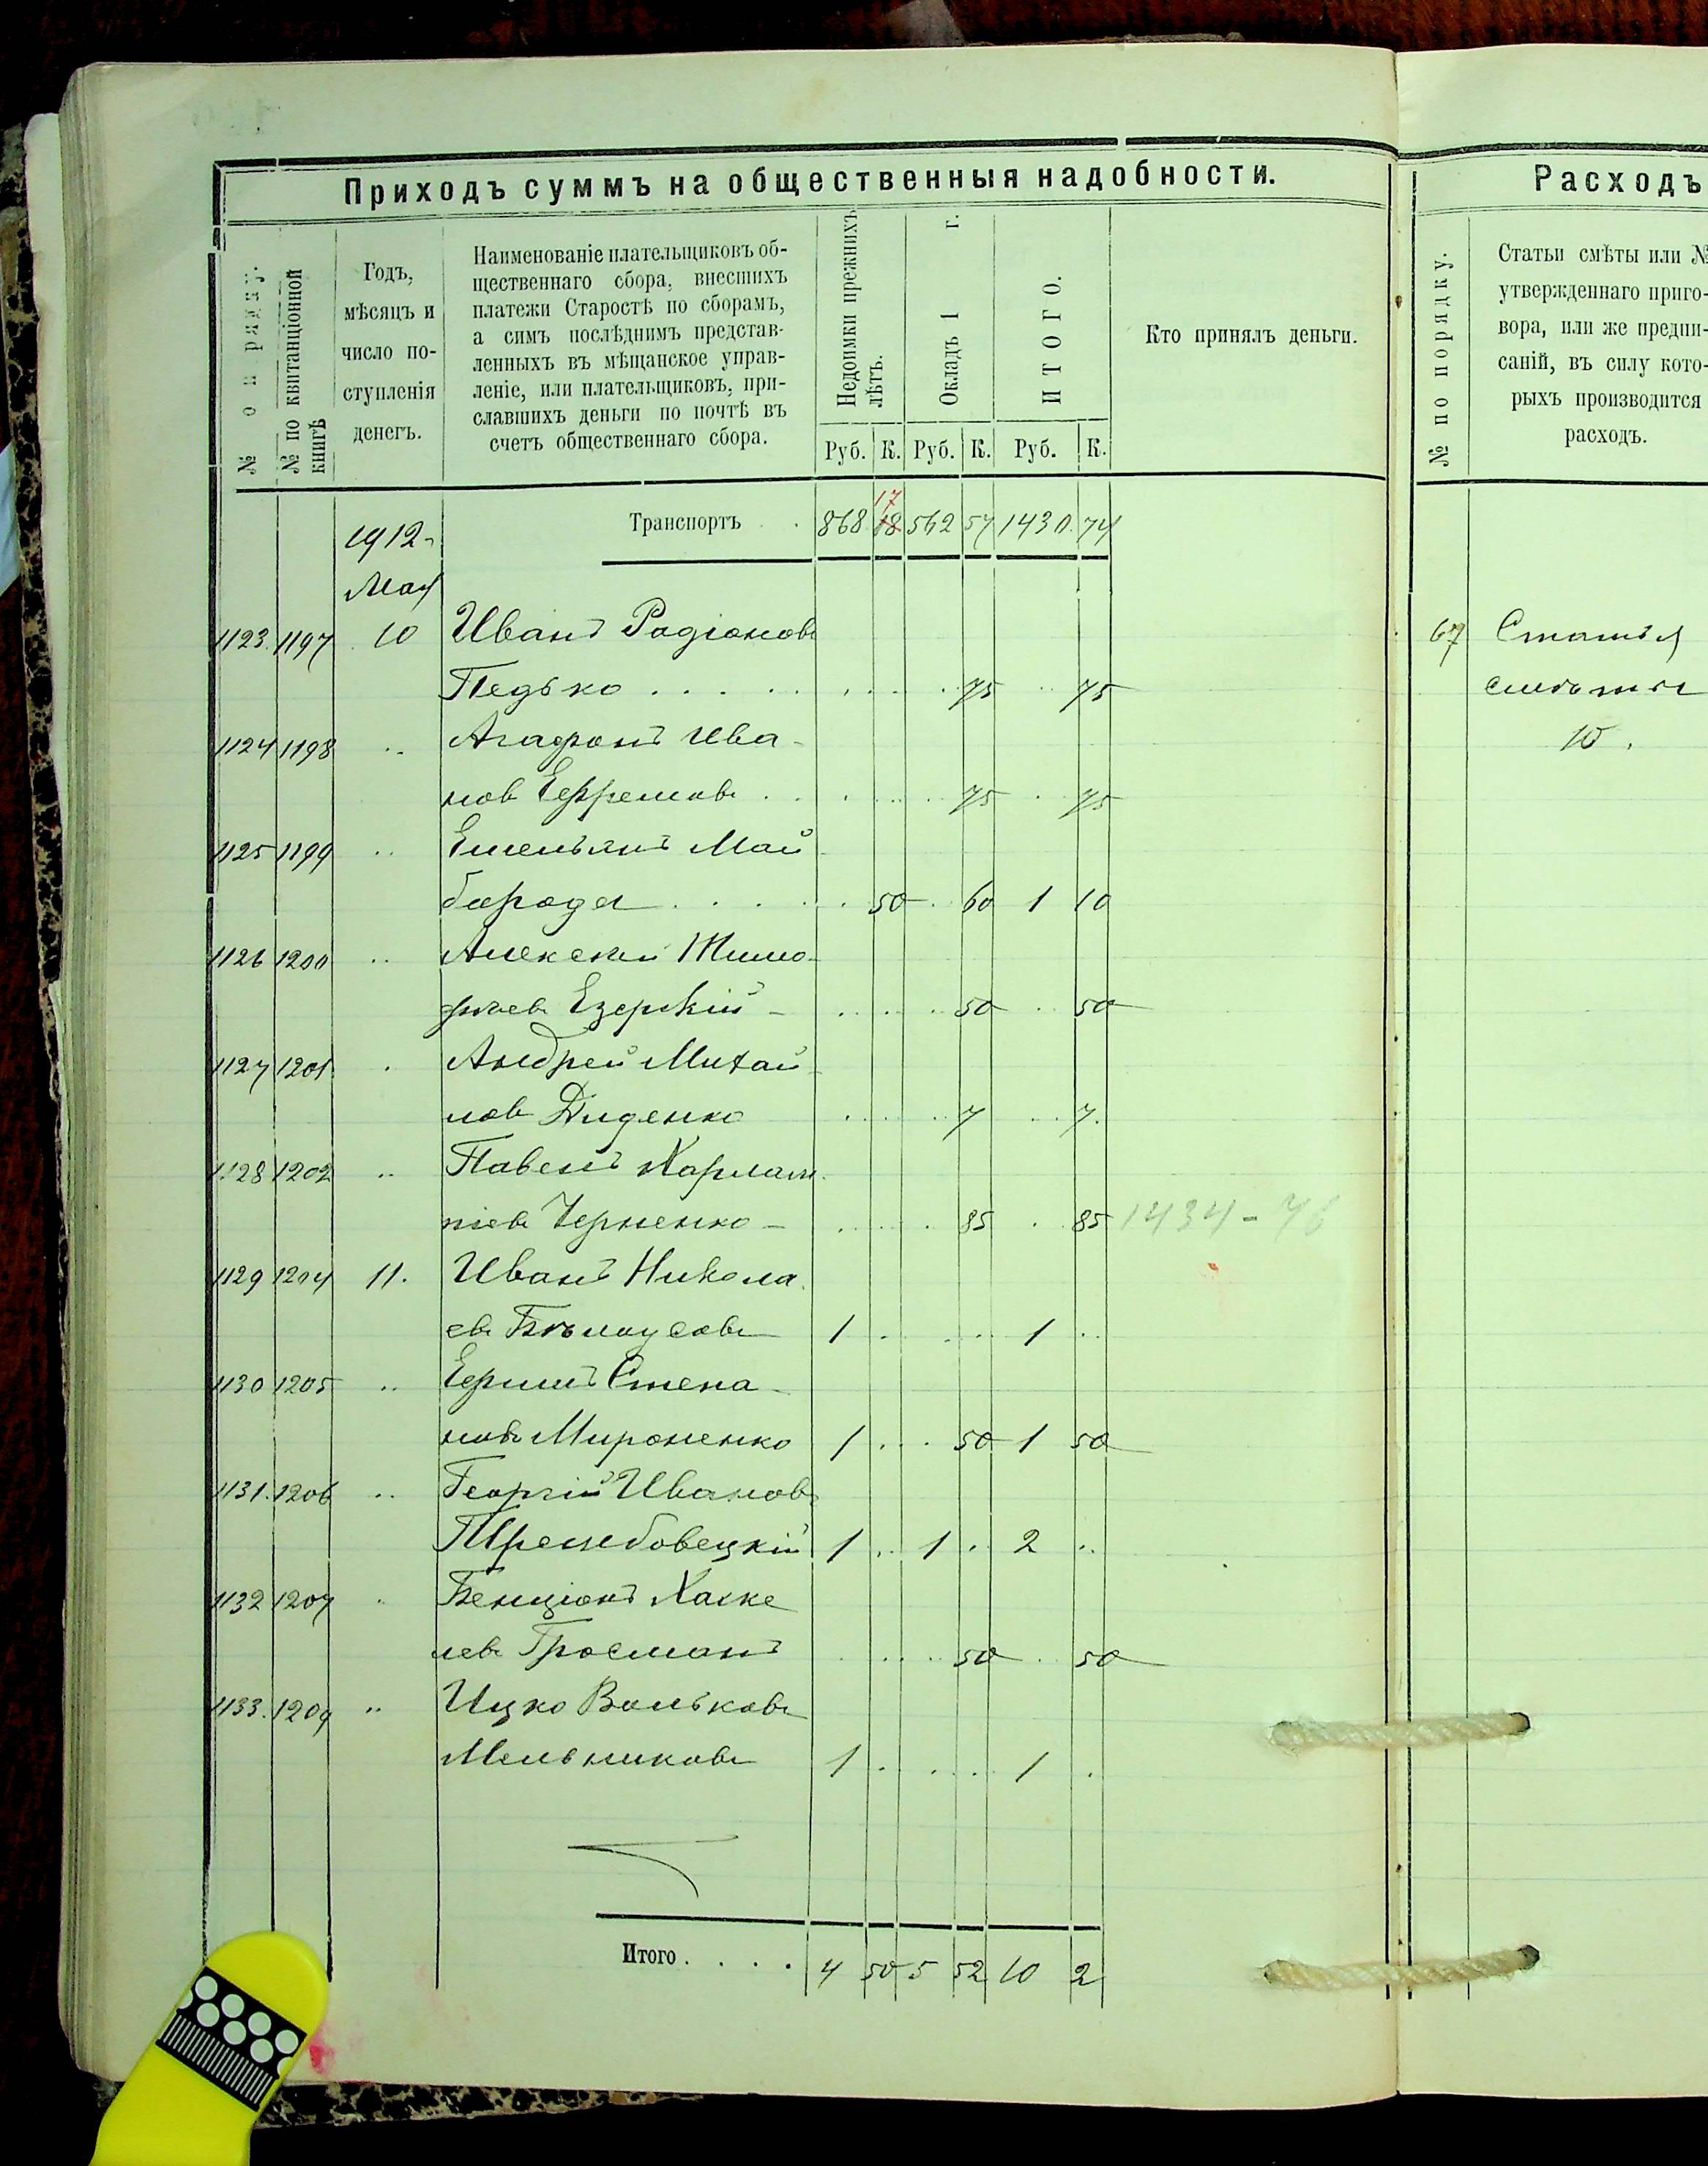 Приходъ суммъ на общественныя надобности.
№ по ряду.
№ по квитанціонной книгѣ
Годъ, мѣсяцъ и число поступленія денегъ.
Наименованіе плательщиковъ об-
щественнаго сбора, внесшихъ
платежи Старостѣ по сборамъ,
а симъ послѣднимъ представ-
ленныхъ въ мѣщанское управ-
леніе, или плательщиковъ, при-
славшихъ деньги по почтѣ въ
счетъ общественнаго сбора.
Недоимки прежнихъ лѣтъ.
Окладъ 1 г.
ИТОГО.
Кто принялъ деньги.
Руб. К. Руб. К. Руб. К.
1912 Транспортъ 868 18 17 562 57 1430 74
Мая
1123. 1197 10 Иванъ Родіоновъ
Педько . . . . . 75 75
1124 1198 .. Агафонъ Ива-
новъ Ефремовъ . . 75 75
1125 1199 .. Емельянъ Май
борода . . . . 50 60 1 10
1126 1200 .. Алексѣй Тимо-
фѣевъ Езерскій - 50 50
1127 1201 . Андрей Михай-
ловъ Диденко 7 7.
1128 1202 .. Павелъ Харлам-
піевъ Черненко - 85 85 1434-76
1129 1204 11. Иванъ Никола
евъ Бѣлоусовъ 1 . . 1 ..
1130 1205 .. Ефимъ Степа-
новъ Мироненко 1 . . 50 1 50
1131. 1206 .. Георгій Ивановъ
Трембовецкій 1 .. 1 . 2 ..
1132 1207 .. Бенціонъ Хаске
левъ Гросманъ 50 50
1133. 1209 .. Ицко Вольковъ
Мельниковъ 1 . . 1 .
Итого . . . . 4 50 5 52 10 2
Расходъ
№ по порядку.
Статьи смѣты или №
утвержденнаго приго-
вора, или же предпи-
саній, въ силу кото-
рыхъ производится
расходъ.
67 Статья
смѣты
10.